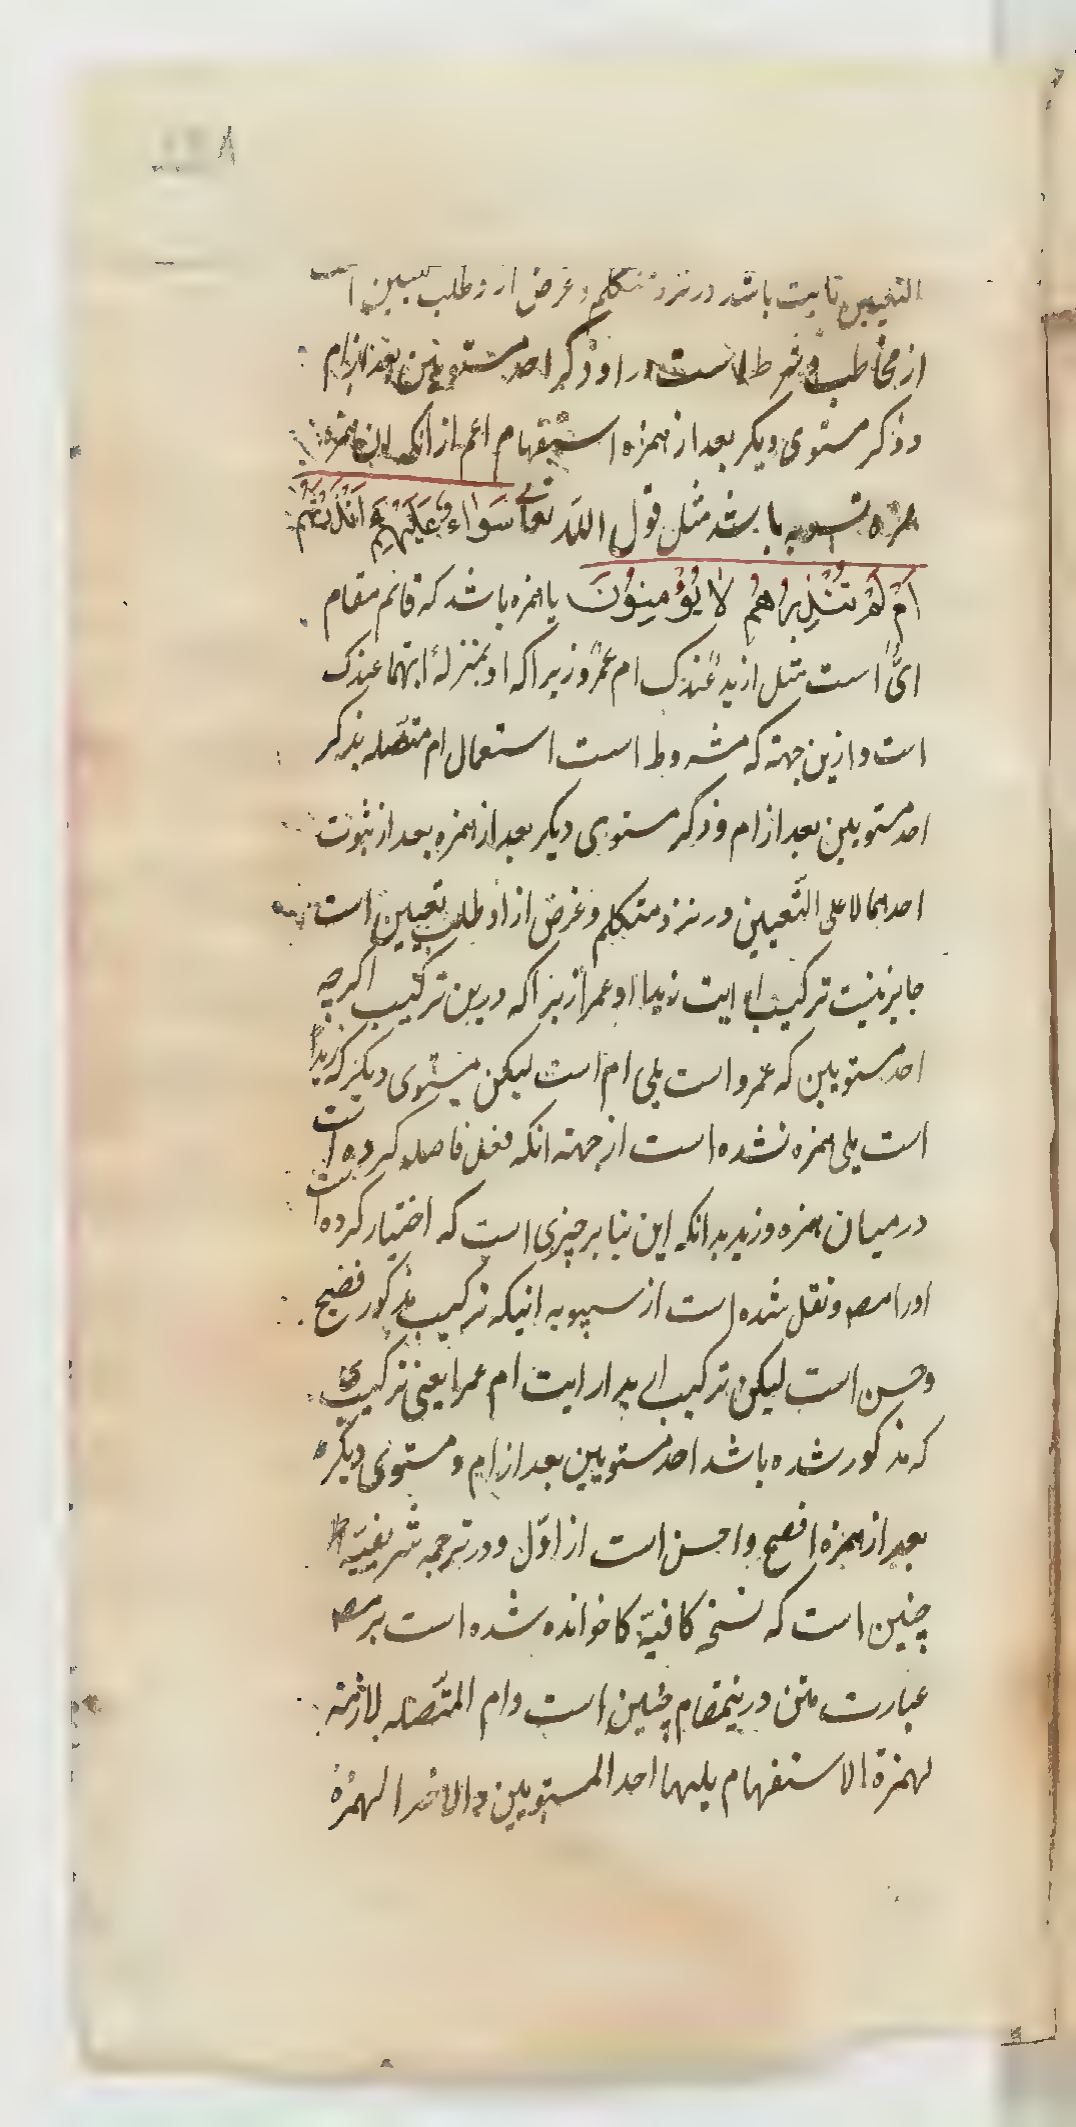 التعیین ثابت باشد در نزد متکلم و غرض از و طلب تعیین است
از مخاطب و شرط است در او ذکر احد مستویین بعد از ام
و ذکر مستوی دیکر بعد از همزه استفهام اعم از انکه این همزه
همزه تسویه باشد مثل قول الله تعالی سَوَاءٌ عَلَیْهِمْ اَنْذَرْتَهُمْ
اَمْ لَمْ تُنْذِرْهُمْ لَا یُؤْمِنُوْنَ یا همزه باشد که قائم مقام
ایّ است مثل ازیدٌ عندک ام عمرٌو زیرا که او بمنزلهٔ ایهما عندک
است و ازین جهته که مشروط است استعمال ام متصّله بذکر
احد مستویین بعد از ام و ذکر مستوی دیکر بعد از همزه بعد از ثبوت
احدهما لا علی التّعیین در نزد متکلم و غرض از او طلب تعیین است
جایز نیست ترکیب ارایت زیدا او عمرا زیرا که درین ترکیب اکرچه
احد مستویین که عمرو است یلی ام است لیکن مستوی دیکر که زیدا
است یلی همزه نشده است از جهته انکه فعل فاصله کرده است
در میان همزه و زید بدانکه این بنا بر چیزی است که اختیار کرده است
اورا مص و نقل شده است از سیبویه اینکه ترکیب مذکور فصیح
و حسن است لیکن ترکیب ازیدا رایت ام عمرا یعنی ترکیب
که مذکور شده باشد احد مستویین بعد از ام و مستوی دیکر
بعد از همزه افصح و احسن است از اوّل و در ترجمه شریفیّه
چنین است که نسخه کافیّه کا خوانده شده است بر مص
عبارت متن درینمقام چنین است و ام المتّصله لازمة
لهمزة الاستفهام یلیها احد المستویین و الاخر الهمزة